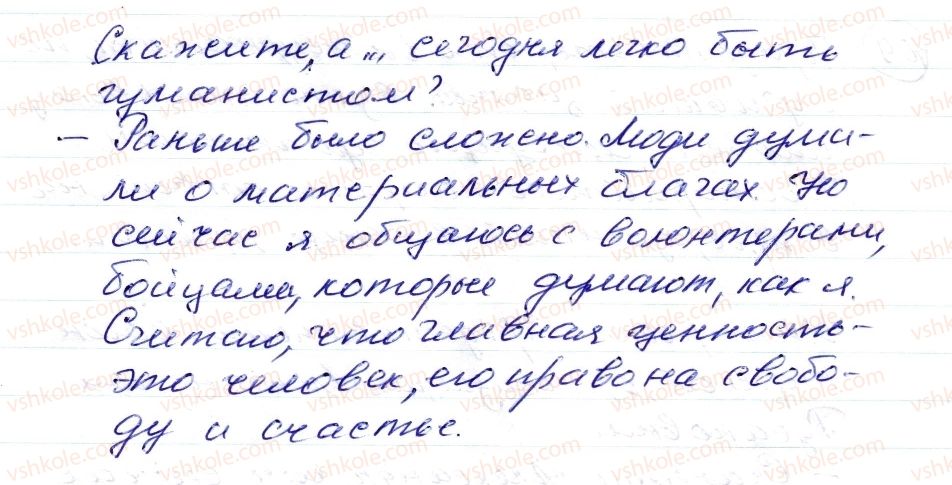 Скажите, а „, сегодня легко быть
гуманистом?
– Раньше было сложно. Люди дума-
ли о материальных благах. Но
сейчас я общаюсь с волонтерами,
бойцами, которые думают, как я.
Считаю, что главная ценность –
это человек, его право на свобо-
ду и счастье.